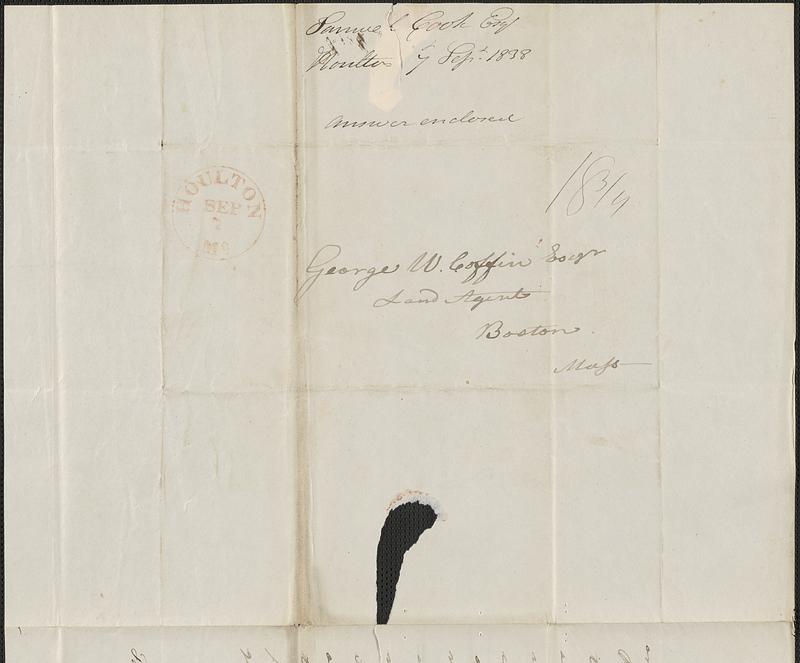 Samuel Cook Esq
Houlton 7 Sept. 1838
answer enclosed
HOULTON
SEP
7
Me
18 3/4
George W. Coffin Esqr
Land Agent
Boston.
Mass